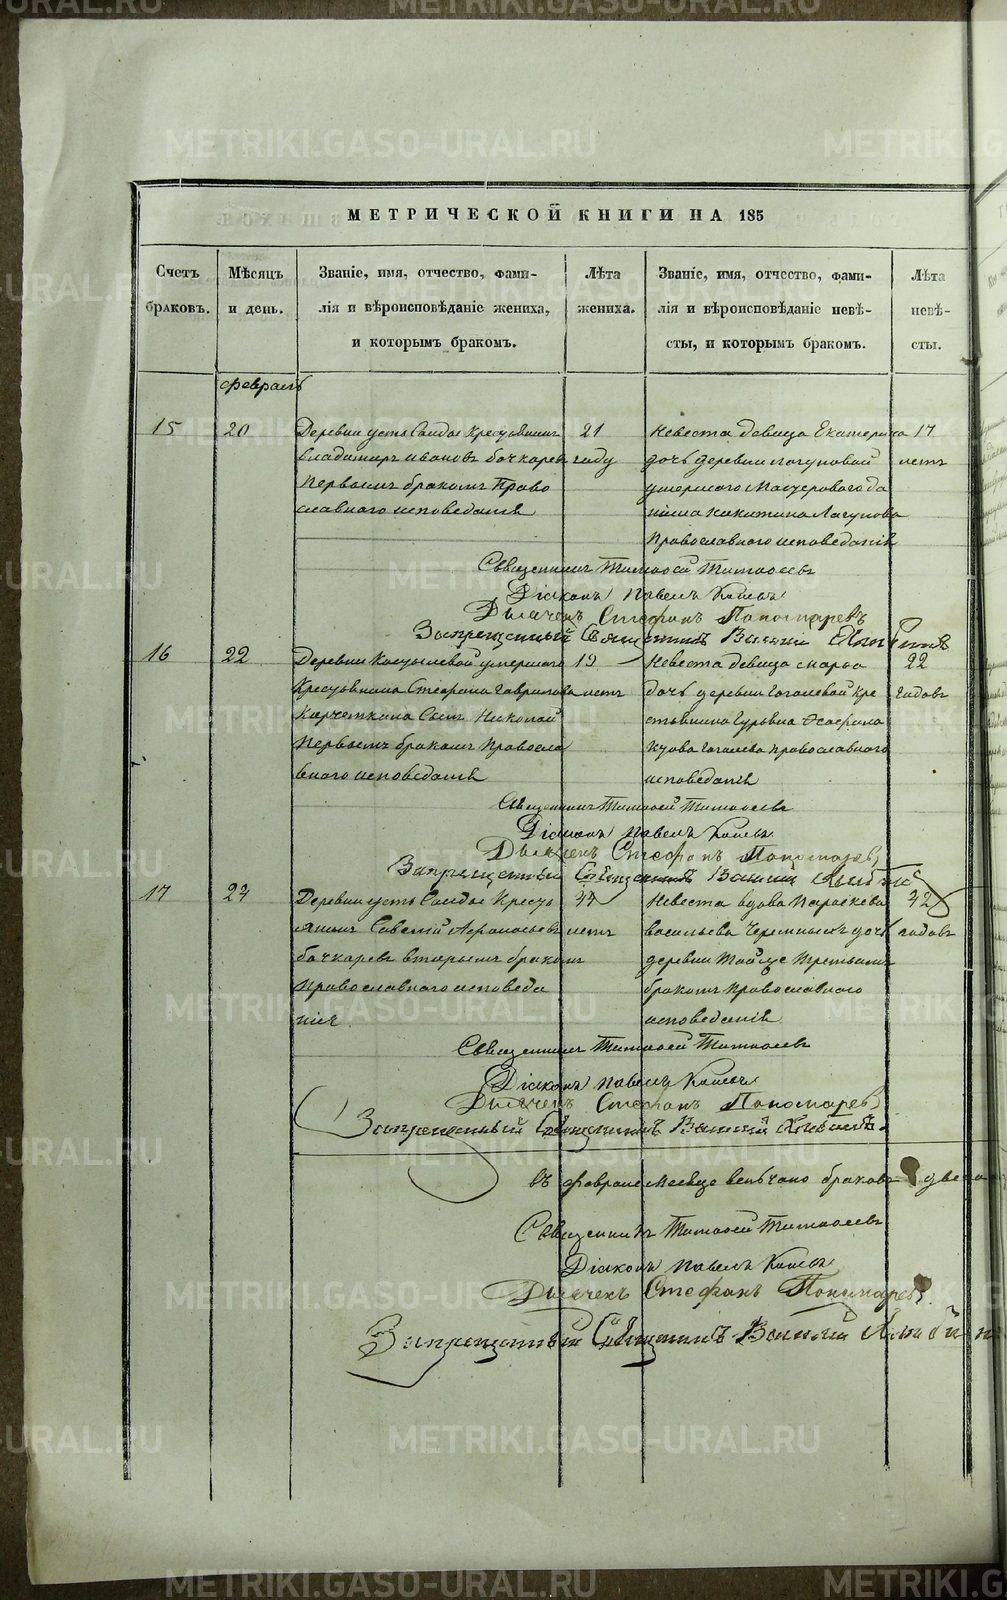 МЕТРИЧЕСКОЙ КНИГИ НА 185
Счетъ браковъ.
Мѣсяцъ и день.
Званіе, имя, отчество, фами-
лія и вѣроисповѣданіе жениха,
и которымъ бракомъ.
Лѣта жениха.
Званіе, имя, отчество, фами-
лія и вѣроисповѣданіе невѣ-
сты, и которымъ бракомъ.
Лѣта невѣ-
сты.
февраль
15
20
Деревни усть
владимиръ ивановъ бочкаревъ
Первымъ бракомъ Право
славнаго исповеданія
21
году
Невеста девица Екатерина
дочь деревни лагуновой
умершаго Мастероваго да
нила никитина Лагунова
Православнаго исповеданія
17
летъ
Священникъ Тимофей Тимофеевъ
Діаконъ павелъ
Дьячекъ Стефанъ Пономаревъ
Запрещенный Священникъ
16
22
Деревни умершаго
Крестьянина гаврилова
Сынъ Николай
Первымъ бракомъ Правосла
внаго исповеданія
19
летъ
Невеста девица марфа
дочь деревни гоголевой кре
стьянина
гоголева православнаго
исповеданія
22
годовъ
Священникъ Тимофей Тимофеевъ
Діаконъ павелъ
Дьячекъ Стефанъ Пономаревъ
Запрещенный Священникъ
17
Деревни усть Кресть
янинъ Савелій Афонасьевъ
бочкаревъ вторымъ бракомъ
православнаго исповеда
нія
летъ
Невеста вдова Параскева
васильева дочь
деревни третьимъ
бракомъ православнаго
исповеданія
42
годовъ
Священникъ Тимофей Тимофеевъ
Діаконъ павелъ
Дьячекъ Стефанъ Пономаревъ
Запрещенный Священникъ
въ феврале месяце венчано браковъ
Священникъ Тимофей Тимофеевъ
Діаконъ павелъ
Дьячекъ Стефанъ Пономаревъ
Запрещенный Священникъ
METRIKI.GASO-URAL.RU